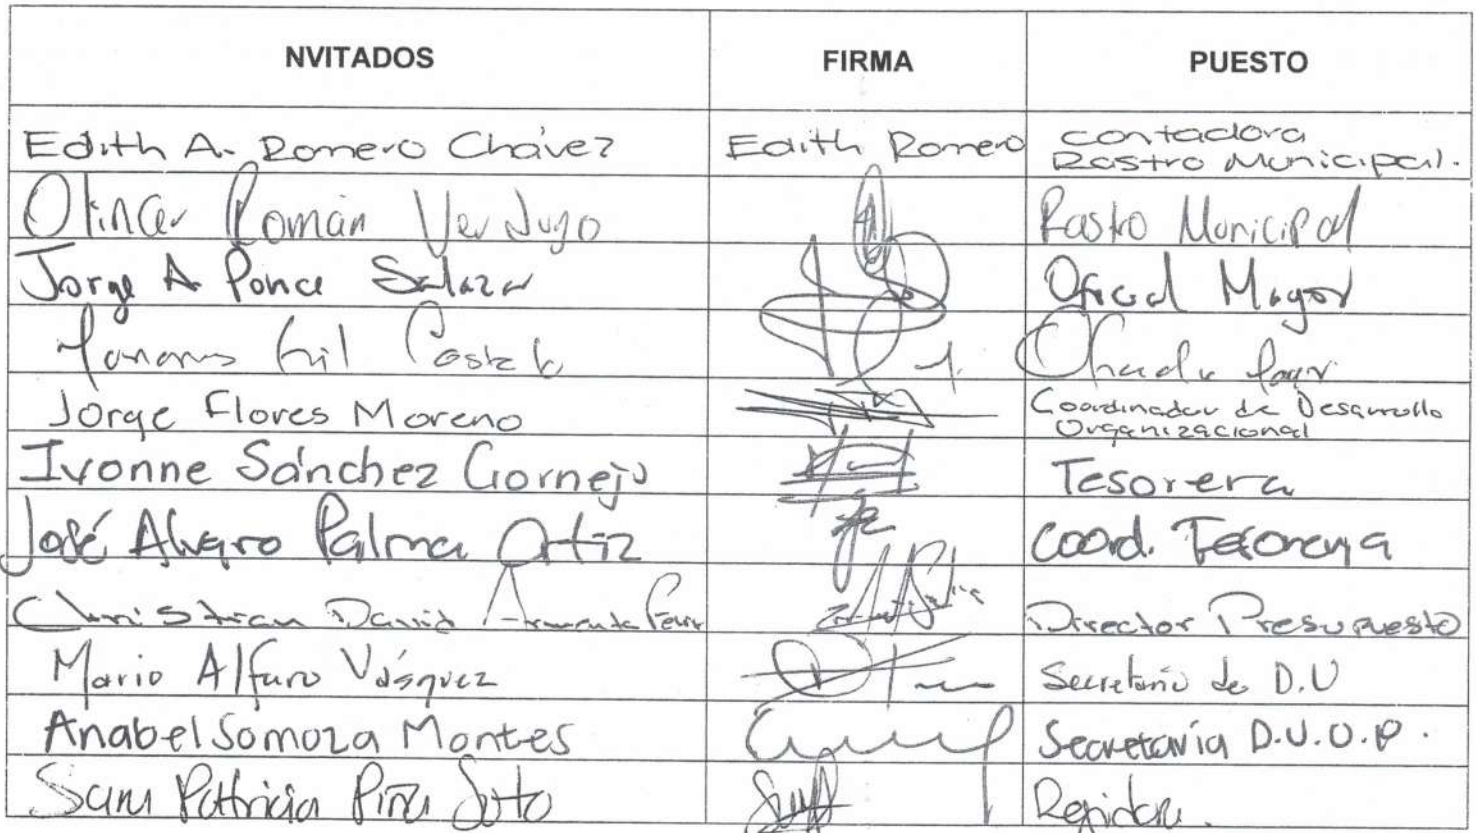 NVITADOS FIRMA PUESTO
Edith A. Romero Chávez Edith Romero contadora
Rastro Municipal.
Román Verdugo Rastro Municipal
Jorge A Ponce Salazar Oficial Mayor
Gil
Jorge Flores Moreno Coordinador de Desarrollo
Organizacional
Ivonne Sánchez Cornejo Tesorera
José Alvaro Palma Ortiz Coord.
Christian David Director Presupuesto
Mario Alfaro Vásquez Secretario de D.U
Anabel Somoza Montes Secretaría D.U.O.P.
Sara Patricia Piña Soto Regidora.